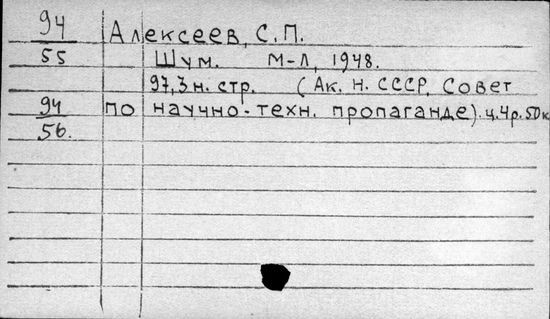 94 Алексеев, С.П.
55 Шум. М-Л, 1948.
97,3 н. стр. (Ак. н. СССР, Совет
94 по научно-техн. пропаганде). ц. 4 р. 50 к
56.